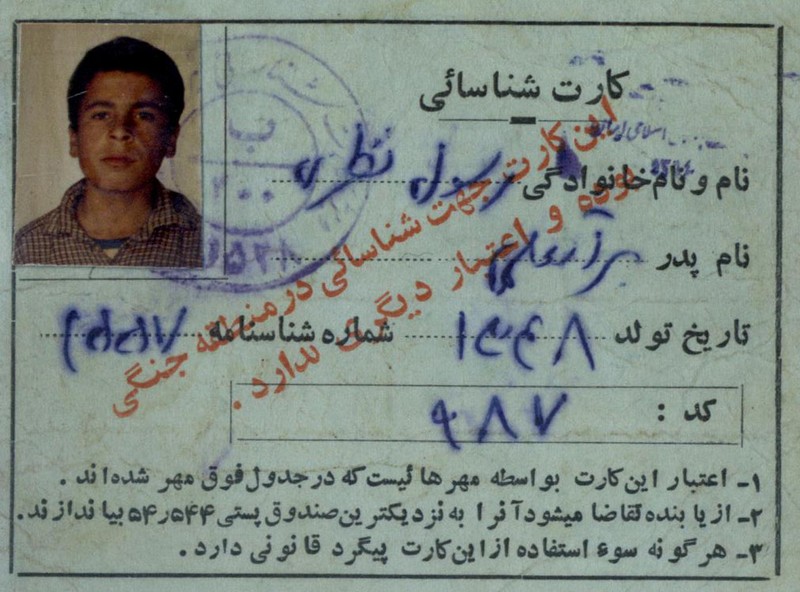 کارت شناسائی
نام و نام‌خانوادگی رسول نظری
نام پدر
تاریخ تولد ۱۳۴۸ شماره شناسنامه
کد : ۹۸۷
این کارت جهت شناسائی در منطقه جنگی
بوده و اعتبار دیگری ندارد .
۱ـ اعتبار این کارت بواسطه مهرهائیست که در جدول فوق مهر شده‌اند .
۲ـ از یابنده تقاضا میشود آنرا به نزدیکترین صندوق پستی بیاندازند.
۳ـ هرگونه سوء استفاده از این کارت پیگرد قانونی دارد .